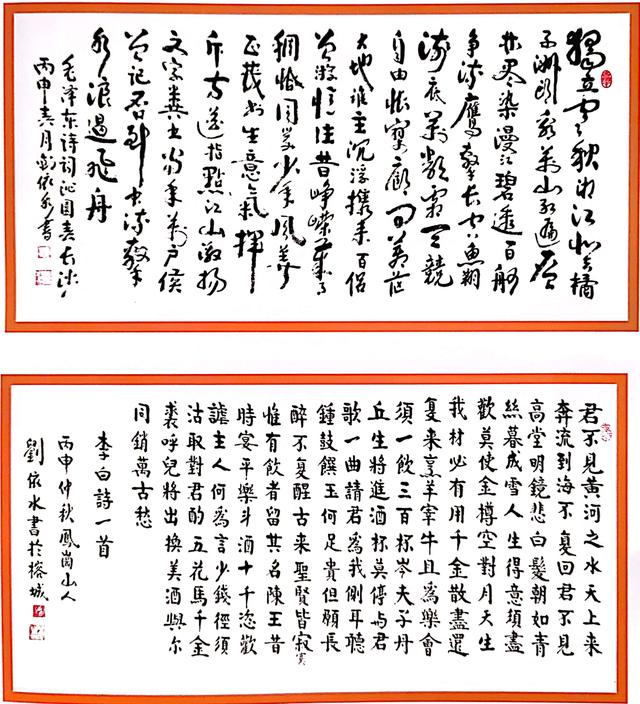 獨立寒秋湘江北去橘
子洲頭看萬山红遍层
林尽染漫江碧透百舸
争流鹰擊长空魚翔
浅底萬類霜天競
自由怅寥廓问蒼茫
大地谁主沉浮攜来百侣
曾游憶往昔峥嵘歲月
稠恰同学少年風華
正茂书生意氣揮
斥方遒指點江山激扬
文字糞土當年萬户侯
曾记否到中流擊
水浪遏飛舟
毛泽东诗词沁园春长沙
丙申春月劉依水書
君不見黃河之水天上来
奔流到海不复回君不見
高堂明鏡悲白髮朝如青
絲暮成雪人生得意須盡
歡莫使金樽空對月天生
我材必有用千金散盡還
复来烹羊宰牛且為樂會
須一飲三百杯岑夫子丹
丘生將進酒杯莫停与君
歌一曲請君為我側耳聽
鍾鼓饌玉何足貴但願長
醉不复醒古来聖賢皆寂寞
惟有飲者留其名陳王昔
時宴平樂斗酒十千恣歡
謔主人何為言少錢徑須
沽取對君酌五花馬千金
裘呼兒將出換美酒與尔
同銷萬古愁
李白詩一首
丙申仲秋鳳崗山人
劉依水書於榕城